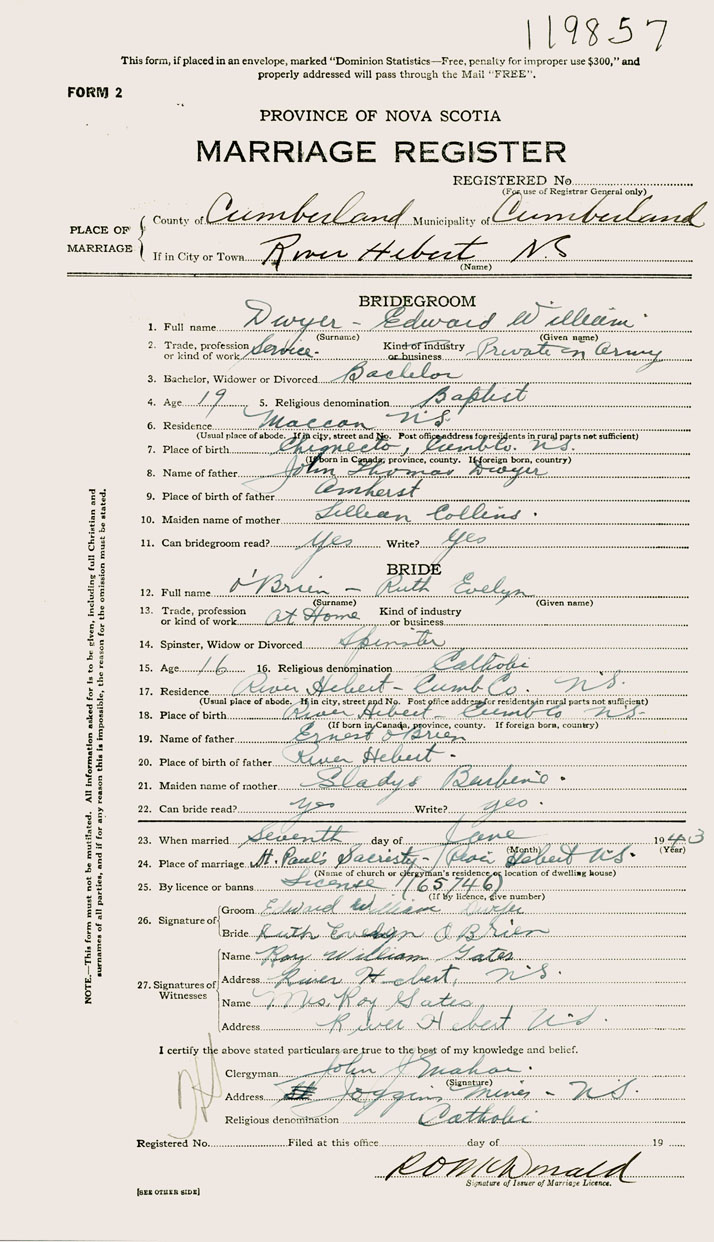 119857
This form, if placed in an envelope, marked "Dominion Statistics—Free, penalty for improper use $300," and
properly addressed will pass through the Mail "FREE".
FORM 2
PROVINCE OF NOVA SCOTIA
MARRIAGE REGISTER
REGISTERED No
(For use of Registrar General only)
PLACE OF MARRIAGE
County of Cumberland Municipality of Cumberland
If in City or Town River Hebert N.S
(Name)
BRIDEGROOM
1. Full name Dwyer - Edward William
(Surname) (Given name)
2. Trade, profession or kind of work Service. Kind of industry or business Private in Army
3. Bachelor, Widower or Divorced Bachelor
4. Age 19 5. Religious denomination Baptist
6. Residence Maccan N.S.
(Usual place of abode. If in city, street and No. Post office address for residents in rural parts not sufficient)
7. Place of birth Chignecto, Cumb Co. N.S.
(If born in Canada, province, county. If foreign born, country)
8. Name of father John Thomas Dwyer
9. Place of birth of father Amherst
10. Maiden name of mother Lillian Collins.
11. Can bridegroom read? Yes Write? Yes
BRIDE
12. Full name O'Brien - Ruth Evelyn
(Surname) (Given name)
13. Trade, profession or kind of work At Home Kind of industry or business
14. Spinster, Widow or Divorced Spinster
15. Age 16 16. Religious denomination Catholic
17. Residence River Hebert - Cumb Co. N.S.
(Usual place of abode. If in city, street and No. Post office address for residents in rural parts not sufficient)
18. Place of birth River Hebert - Cumb Co N.S.
(If born in Canada, province, county. If foreign born, country)
19. Name of father Ernest O'Brien
20. Place of birth of father River Hebert -
21. Maiden name of mother Gladys
22. Can bride read? yes Write? yes.
23. When married Seventh day of June 1943
(Month) (Year)
24. Place of marriage St. Paul's Sacristy - River Hebert N.S.
(Name of church or clergyman's residence or location of dwelling house)
25. By licence or banns License (65746)
(If by licence, give number)
26. Signature of
Groom Edward William Dwyer
Bride Ruth Evelyn O'Brien
27. Signatures of Witnesses
Name Roy William Gates
Address River Hebert, N.S.
Name Mrs. Roy Gates
Address River Hebert N.S.
I certify the above stated particulars are true to the best of my knowledge and belief.
Clergyman John J
(Signature)
Address Joggins Mines - N.S.
Religious denomination Catholic
Registered No. Filed at this office day of 19
R O McDonald
Signature of Issuer of Marriage Licence.
[SEE OTHER SIDE]
NOTE.—This form must not be mutilated. All information asked for is to be given, including full Christian and
surnames of all parties, and if for any reason this is impossible, the reason for the omission must be stated.